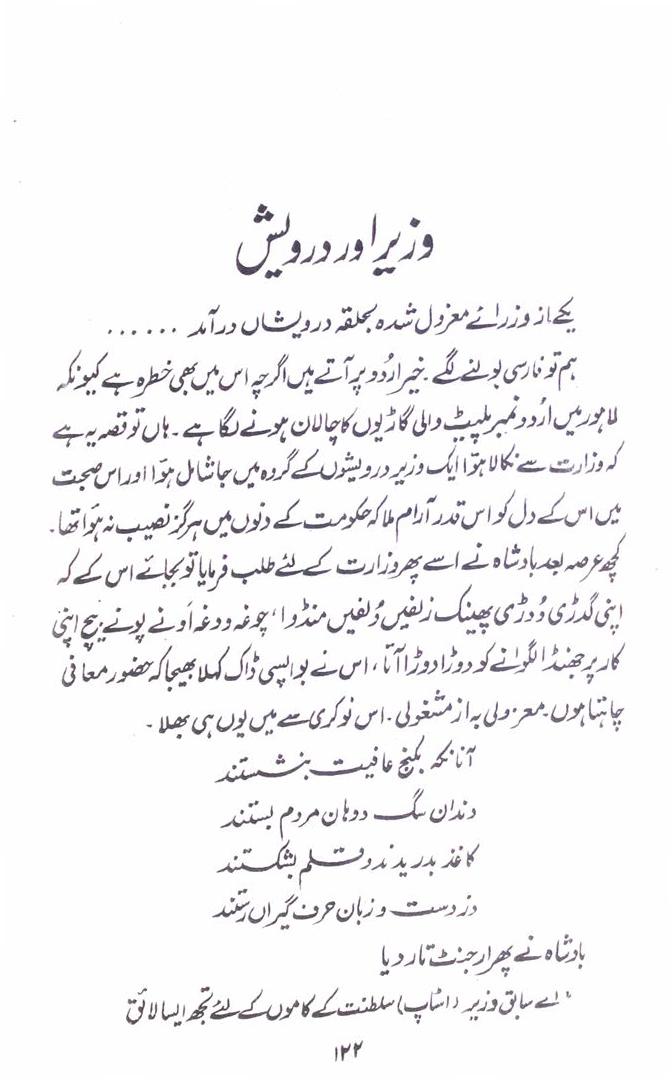 وزیر اور درویش
یکے از وزرائے معزول شدہ بحلقہ درویشاں درآمد ......
ہم تو فارسی بولنے لگے ۔ خیر اردو پر آتے ہیں اگرچہ اس میں بھی خطرہ ہے کیونکہ
لاہور میں اُردو نمبر پلیٹ والی گاڑیوں کا چالان ہونے لگا ہے ۔ ہاں تو قصہ یہ ہے
کہ وزارت سے نکالا ہوا ایک وزیر درویشوں کے گروہ میں جا شامل ہوا اور اس صحبت
میں اس کے دل کو اس قدر آرام ملا کہ حکومت کے دنوں میں ہرگز نصیب نہ ہوا تھا۔
کچھ عرصہ بعد بادشاہ نے اسے پھر وزارت کے لئے طلب فرمایا تو بجائے اس کے کہ
اپنی گدڑی وُدڑی پھینک زلفیں وُلفیں منڈوا، چوغہ ودغہ اَونے پونے بیچ اپنی
کار پر جھنڈا لگوانے کو دوڑا دوڑا آتا، اس نے بواپسی ڈاک کہلا بھیجا کہ حضور معافی
چاہتا ہوں۔ معزولی بہ از مشغولی ۔ اس نوکری سے میں یوں ہی بھلا ۔
آنانکہ بکنج عافیت بنشستند
دندان سگ و دہان مردم بستند
کاغذ بدریدند و قلم بشکستند
وز دست و زبان حرف گیراں رستند
بادشاہ نے پھر ارجنٹ تار دیا
"اے سابق وزیر (اسٹاپ) سلطنت کے کاموں کے لئے تجھ ایسا لائق
۱۲۲